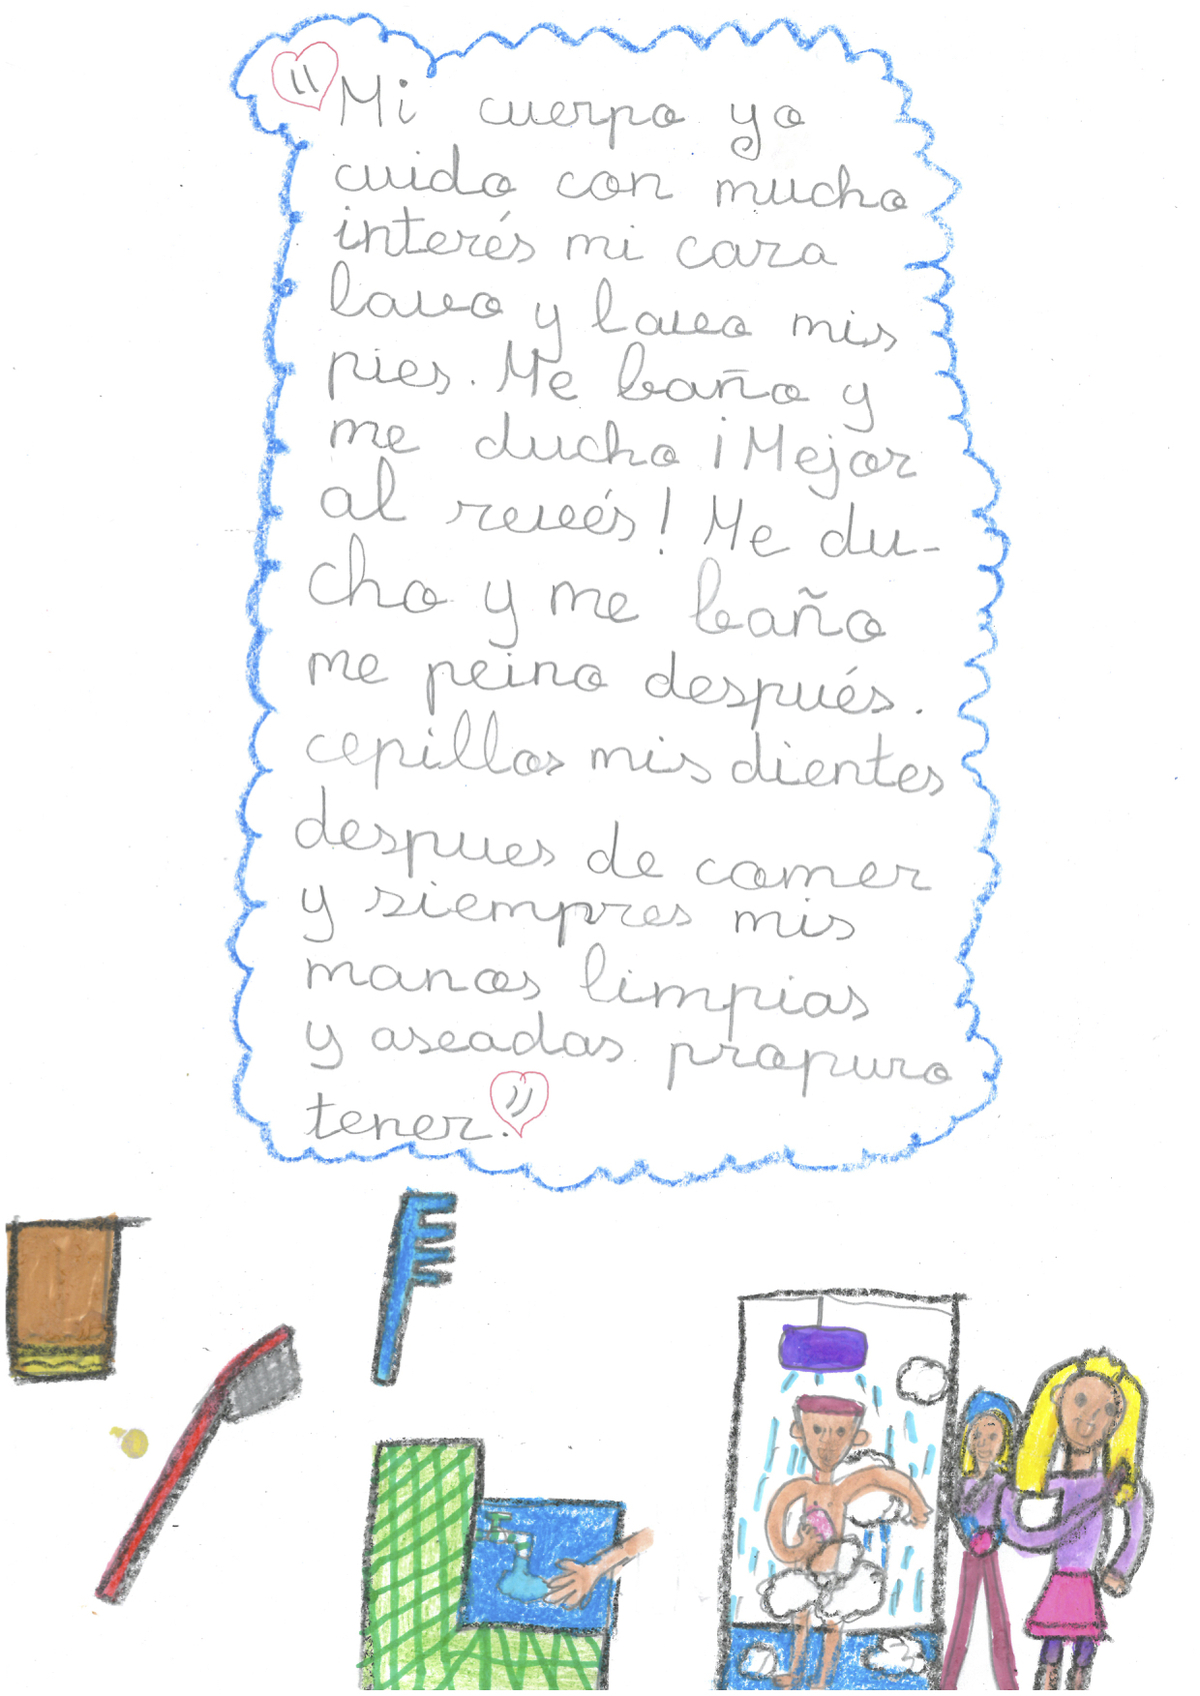 "Mi cuerpo yo
cuido con mucho
interés mi cara
lavo y lavo mis
pies. Me baño y
me ducho ¡Mejor
al revés! Me du-
cho y me baño
me peino después.
cepillos mis dientes
despues de comer
y siempres mis
manos limpias
y aseadas propuro
tener."